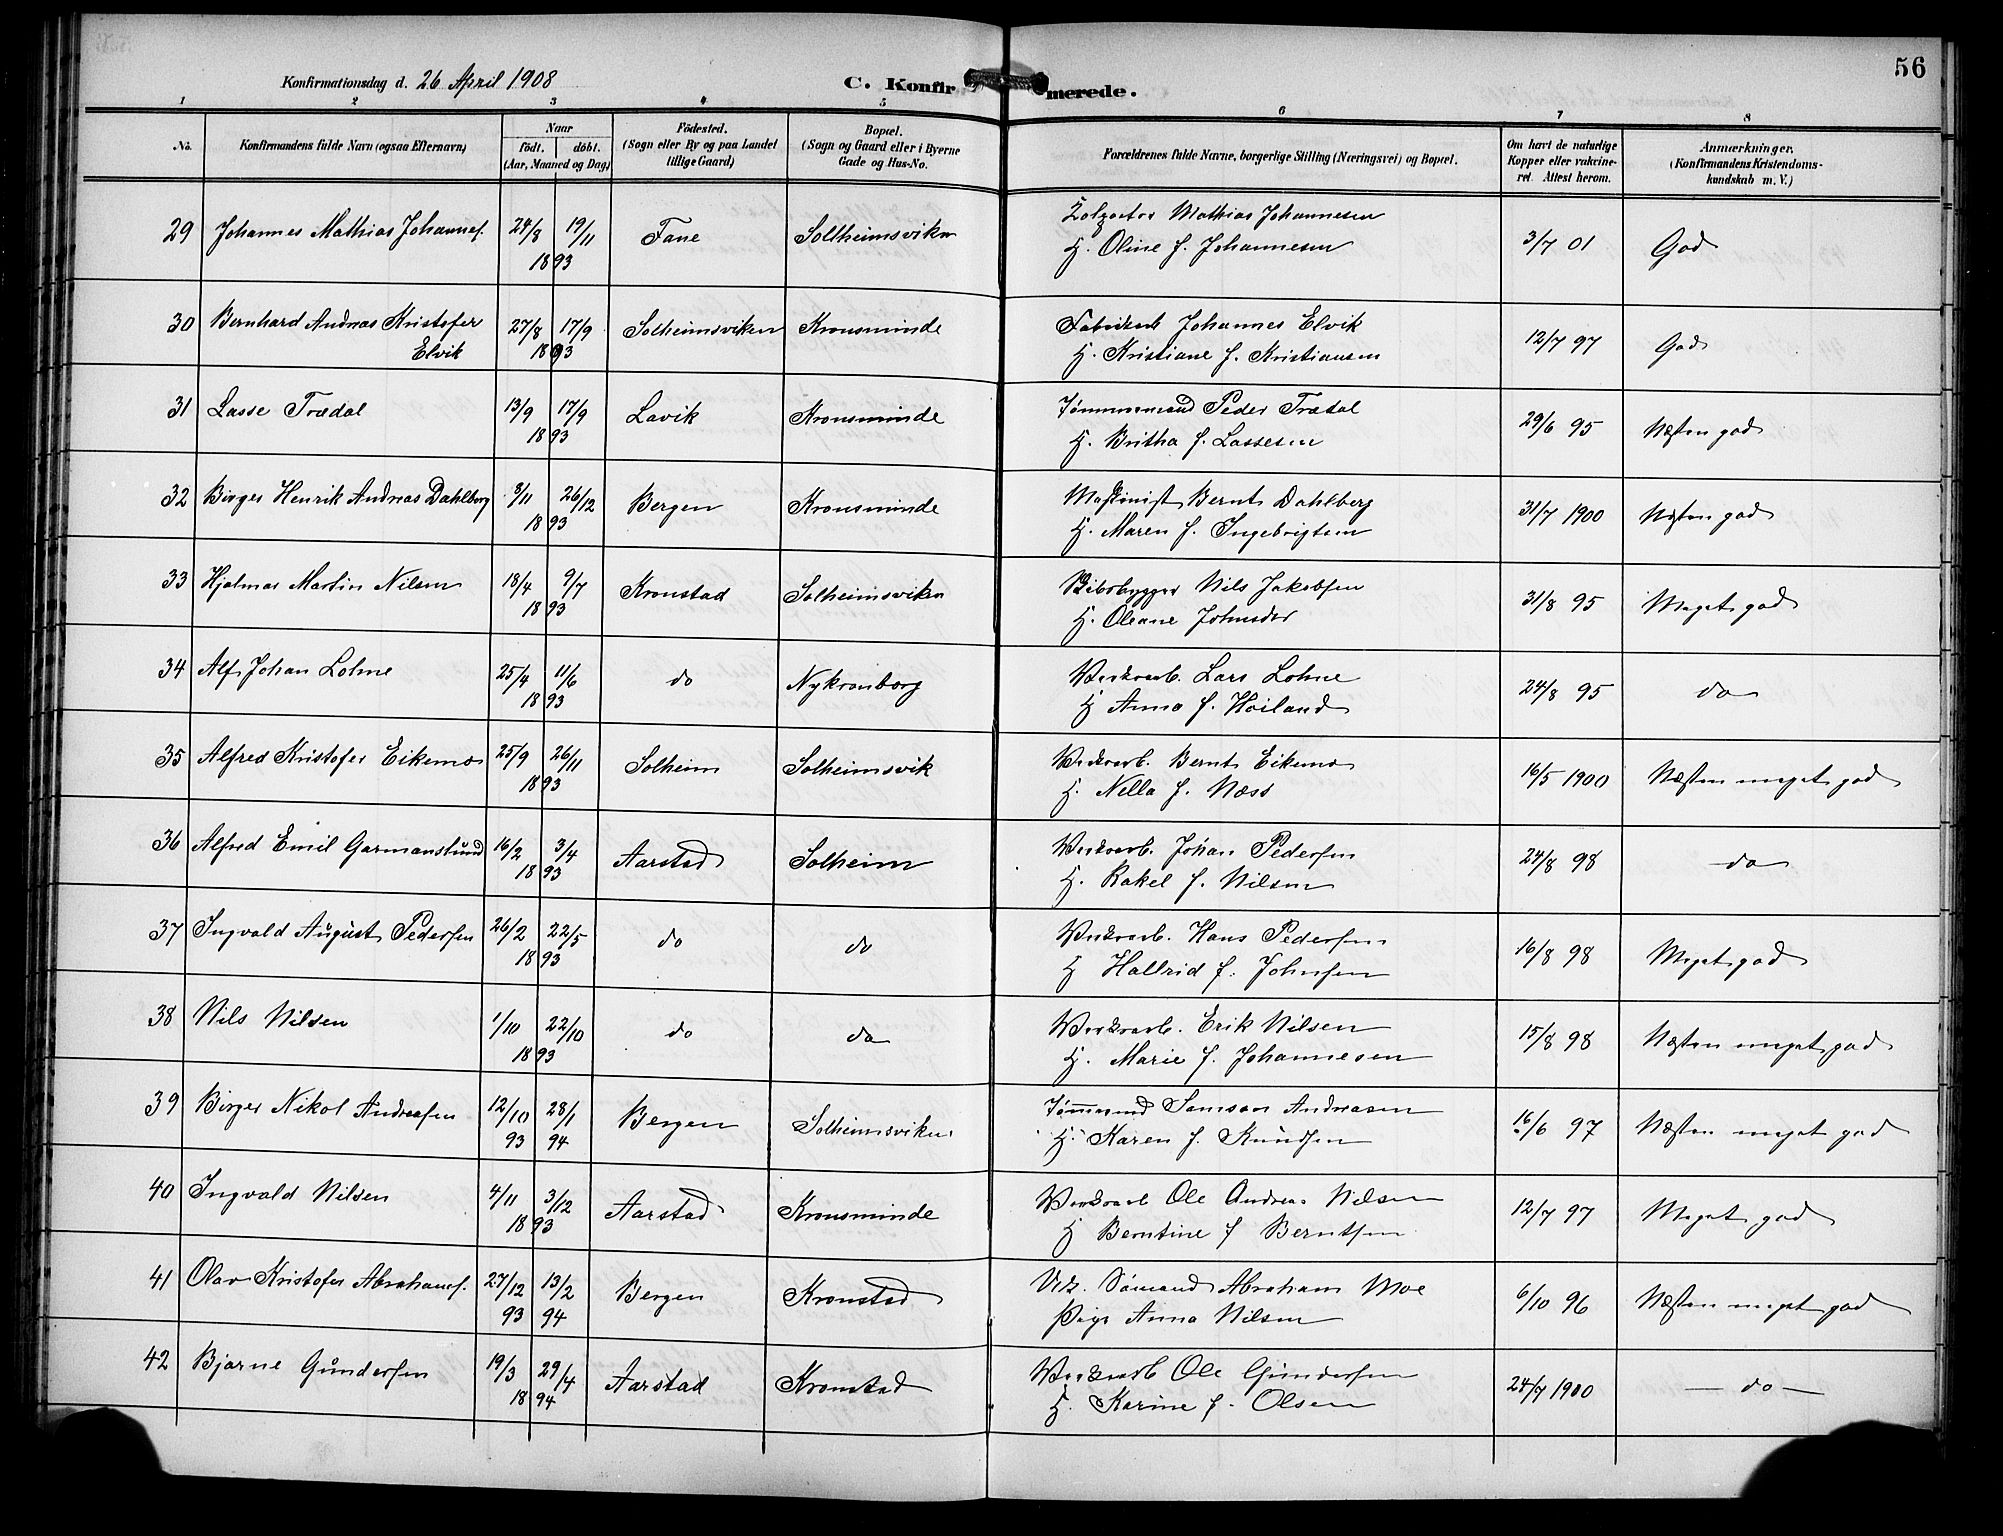 56
Konfirmationsdag d. 26 April 1908
C. Konfirmerede.
1 2 3 4 5 6 7 8
No. | Konfirmandens fulde Navn (ogsaa Efternavn) | Naar født. døbt. (Aar, Maaned og Dag) | Fødested. (Sogn eller By og paa Landet tillige Gaard) | Bopæl. (Sogn og Gaard eller i Byerne Gade og Hus-No. | Forældrenes fulde Navne, borgerlige Stilling (Næringsvei) og Bopæl. | Om havt de naturlige Kopper eller vakcineret. Attest herom. | Anmærkninger. (Konfirmandens Kristendomskundskab m. V.)
29 Johannes Mathias Johannes. 24/8 19/11 Fane Solheimsviken Mathias Johannesen 3/7 01 God
1893 H. Oline f. Johannesen
30 Bernhard Andreas Kristofer 27/8 17/9 Solheimsviken Kronsminde Fabrikarb Johannes Elvik 12/7 97 God
Elvik 1893 H. Kristiane f. Kristiansen
31 Lasse Trædal 13/9 17/9 Lavik Kronsminde Tømmermand Peder Trædal 29/6 95 Næsten god
1893 H. Britha f. Lassesen
32 Birger Henrik Andreas Dahlberg 8/11 26/12 Bergen Kronsminde Maskinist Bernt Dahlberg 31/7 1900 Næsten god
1893 H. Maren f. Ingebrigtsen
33 Hjalmar Martin Nilsen 18/4 9/7 Kronstad Solheimsviken Skibsbygger Nils Jakobsen 31/8 95 Meget god
1893 H. Oleane Johnsdtr
34 Alf Johan Lohne 25/4 11/6 do Nykronborg Verksarb. Lars Lohne 24/8 95 do
1893 H Anna f. Høiland
35 Alfred Kristofer Eikemo 25/9 26/11 Solheim Solheimsvik Verksarb. Bernt Eikemo 16/5 1900 Næsten meget god
1893 H. Nella f. Næss
36 Alfred Emil Garmanslund 16/2 3/4 Aarstad Solheim Verksarb. Johan Pedersen 24/8 98 do
1893 H. Rakel f. Nilsen
37 Ingvald August Pedersen 26/2 22/5 do do Verksarb. Hans Pedersen 16/8 98 Meget god
1893 H Hallrid f. Johnsen
38 Nils Nilsen 1/10 22/10 do do Verksarb. Erik Nilsen 15/8 98 Næsten meget god
1893 H. Marie f. Johannesen
39 Birger Nikol Andreasen 12/10 28/1 Bergen Solheimsviken Tømmermd Samson Andreasen 16/6 97 Næsten meget god
93 94 H. Karen f. Knudsen
40 Ingvald Nilsen 4/11 3/12 Aarstad Kronsminde Verksarb Ole Andreas Nilsen 12/7 97 Meget god
1893 H Berntine f Berntsen
41 Olav Kristofer Abrahams. 27/12 13/2 Bergen Kronstad Sømand Abraham Moe 6/10 96 Næsten meget god
93 94 Pige Anna Nilsen
42 Bjarne Gundersen 19/3 29/4 Aarstad Kronstad Verksarb Ole Gundersen 24/7 1900 — do —
1894 H. Karine f. Olsen